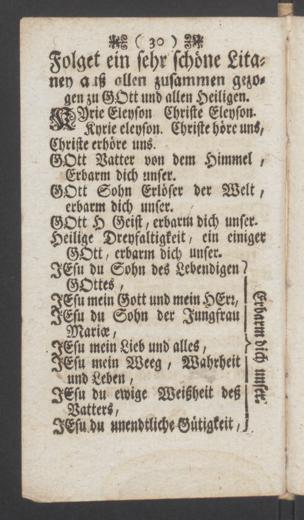 ( 30 )
Folget ein sehr schöne Lita-
ney auß allen zusammen gezo-
gen zu GOtt und allen Heiligen.
KYrie Eleyson Christe Eleyson.
Kyrie eleyson. Christe höre uns,
Christe erhöre uns.
GOtt Vatter von dem Himmel,
Erbarm dich unser.
GOtt Sohn Erlöser der Welt,
erbarm dich unser.
GOtt H Geist, erbarm dich unser.
Heilige Dreyfaltigkeit, ein einiger
GOtt, erbarm dich unser.
JEsu du Sohn des Lebendigen
GOttes,
JEsu mein Gott und mein HErr,
JEsu du Sohn der Jungfrau
Mariæ,
JEsu mein Lieb und alles,
JEsu mein Weeg, Wahrheit
und Leben,
JEsu du ewige Weißheit deß
Vatters,
JEsu du unendtliche Gütigkeit,
Erbarm dich unser.